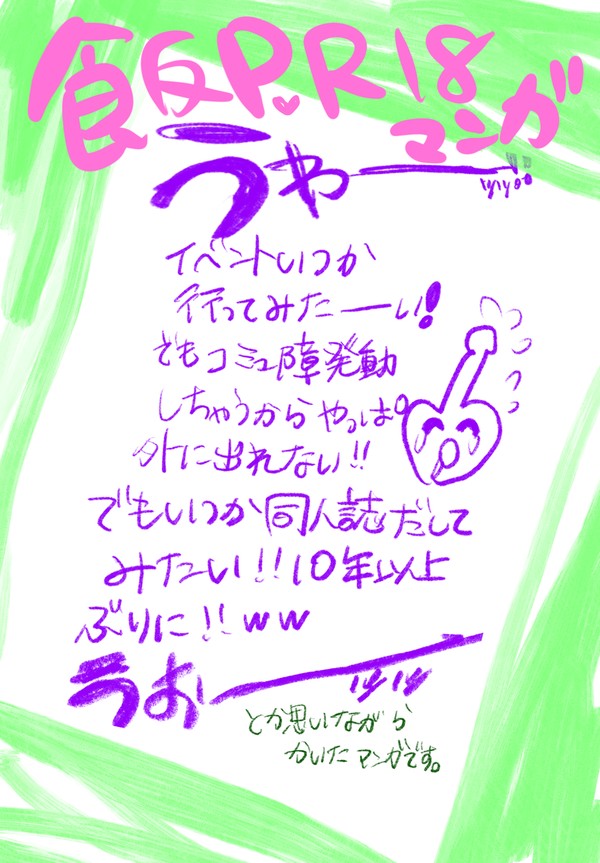 飯P♡R18
マンガ
うわーーッッ。。
イベントいつか
行ってみたーーい!
でもコミュ障発動
しちゃうからやっぱ
外に出れない!!
でもいつか同人誌だして
みたい!!10年以上
ぶりに!!ww
うおーーッッ
とか思いながら
かいたマンガです。